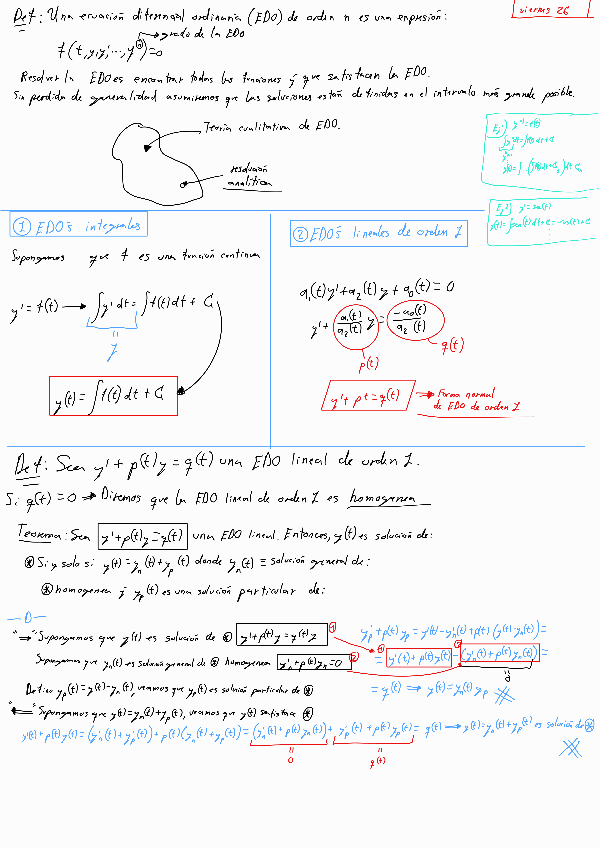 viernes 26
Def: Una ecuación diferencial ordinaria (EDO) de orden n es una expresión:
grado de la EDO
f(t, y, y', ..., yⁿ) = 0
Resolver la EDO es encontrar todas las funciones y que satisfacen la EDO.
Sin perdida de generalidad asumiremos que las soluciones están definidas en el intervalo más grande posible.
Teoría cualitativa de EDO.
resolución
analítica
Ej 1
y'' = f(t)
Ej 2
y' = sen(t)
y(t) = ∫sen(t) dt + C = -cos(t) + C
① EDO's integrales
Supongamos que f es una función continua
y' = f(t) → ∫y' dt = ∫f(t) dt + C
=
y
y(t) = ∫f(t) dt + C
② EDO's lineales de orden 1
a₁(t) y' + a₂(t) y + a₀(t) = 0
y' + a₁(t)/a₂(t) y = -a₀(t)/a₂(t)
p(t)
q(t)
y' + pt = q(t) → Forma normal
de EDO de orden 1
Def: Sea y' + p(t) y = q(t) una EDO lineal de orden 1.
Si q(t) = 0 ⇒ Diremos que la EDO lineal de orden 1 es homogenea
Teorema: Sea y' + p(t)y = q(t) una EDO lineal. Entonces, y(t) es solución de:
⊛ Si y solo si y(t) = yₙ(t) + yₚ(t) donde yₙ(t) ≡ solución general de:
⊛ homogenea y yₚ(t) es una solución particular de:
—D—
"⇒" Supongamos que y(t) es solución de ⊛ ①
Supongamos que yₙ(t) es solución general de ⊛ homogenea y'ₙ + p(t) yₙ = 0 ②
Defino yₚ(t) = y(t) - yₙ(t), veamos que yₚ(t) es solución particular de ⊛
y'ₚ + p(t) yₚ = y'(t) - y'ₙ(t) + p(t) (y(t) - yₙ(t)) =
= y'(t) + p(t) y(t) - (y'ₙ(t) + p(t) yₙ(t)) =
0
= q(t) ⇒ y(t) = yₙ(t) yₚ
"⇐" Supongamos que y(t) = yₙ(t) + yₚ(t), veamos que y(t) satisface ⊛
y'(t) + p(t) y(t) = (y'ₙ(t) + y'ₚ(t)) + p(t) (yₙ(t) + yₚ(t)) = (y'ₙ(t) + p(t) yₙ(t)) + y'ₚ(t) + p(t) yₚ(t) = q(t) → y(t) = yₙ(t) + yₚ(t) es solución de ⊛
= 0
= q(t)